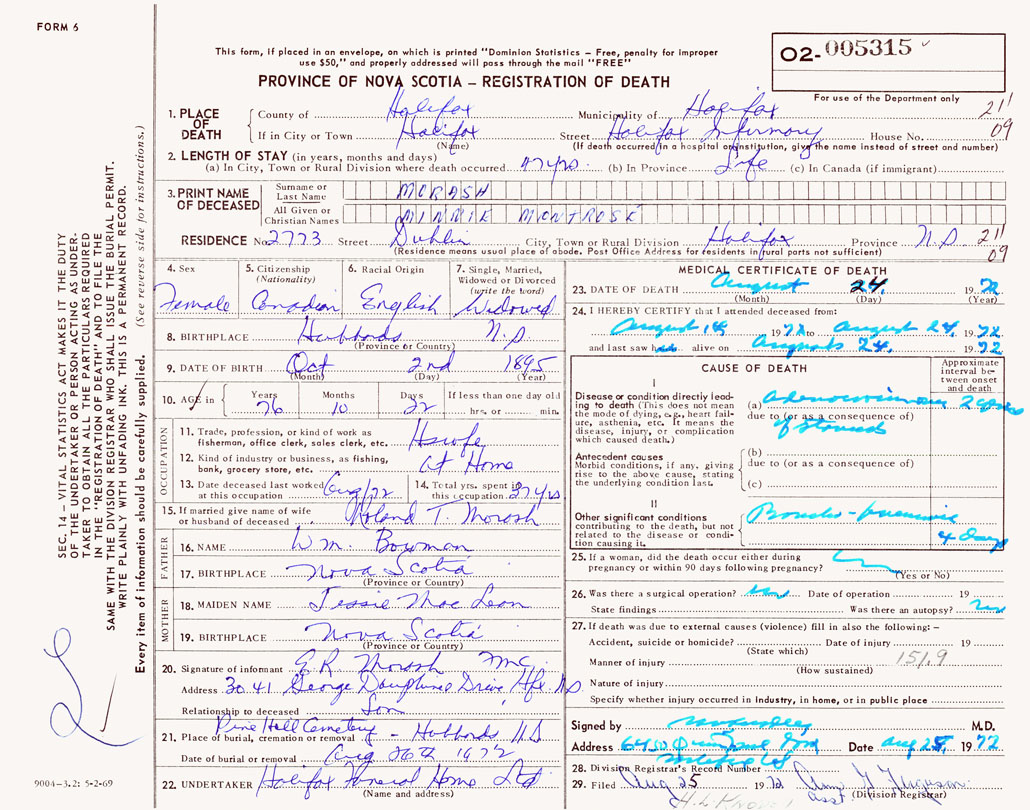 FORM 6
This form, if placed in an envelope, on which is printed "Dominion Statistics – Free, penalty for improper
use $50," and properly addressed will pass through the mail "FREE"
O2-005315
PROVINCE OF NOVA SCOTIA – REGISTRATION OF DEATH
For use of the Department only
211
09
1. PLACE OF DEATH
County of Halifax Municipality of Halifax
If in City or Town Halifax Street Halifax Infirmary House No.
(Name) (If death occurred in a hospital or institution, give the name instead of street and number)
2. LENGTH OF STAY (in years, months and days)
(a) In City, Town or Rural Division where death occurred 47 yrs. (b) In Province Life (c) In Canada (if immigrant)
3. PRINT NAME OF DECEASED
Surname or Last Name MORASH
All Given or Christian Names MINNIE MONTROSE
RESIDENCE No. 2773 Street Dublin City, Town or Rural Division Halifax Province N.S 211
09
(Residence means usual place of abode. Post Office Address for residents in rural parts not sufficient)
4. Sex Female
5. Citizenship (Nationality) Canadian
6. Racial Origin English
7. Single, Married, Widowed or Divorced (write the word) Widowed
8. BIRTHPLACE Hubbards N.S
(Province or Country)
9. DATE OF BIRTH Oct 2nd 1895
(Month) (Day) (Year)
10. AGE in Years 76 Months 10 Days 22 If less than one day old hrs. or min.
OCCUPATION
11. Trade, profession, or kind of work as fisherman, office clerk, sales clerk, etc. Hswfe
12. Kind of industry or business, as fishing, bank, grocery store, etc. At Home
13. Date deceased last worked at this occupation Aug/72
14. Total yrs. spent in this occupation 27 yrs
15. If married give name of wife or husband of deceased Roland T. Morash
FATHER
16. NAME Wm. Bowman
17. BIRTHPLACE Nova Scotia
(Province or Country)
MOTHER
18. MAIDEN NAME Jessie Mac Lean
19. BIRTHPLACE Nova Scotia
(Province or Country)
20. Signature of informant E.R. Morash
Address 3041 George Dauphinee Drive Hfx N.S
Relationship to deceased Son
Pine Hill Cemetery – Hubbards N.S
21. Place of burial, cremation or removal
Date of burial or removal Aug 26th 1972
22. UNDERTAKER Halifax Funeral Home Ltd
(Name and address)
MEDICAL CERTIFICATE OF DEATH
23. DATE OF DEATH August 24, 1972
(Month) (Day) (Year)
24. I HEREBY CERTIFY that I attended deceased from:
August 14 1972 to August 24, 1972
and last saw her alive on August 24, 1972
CAUSE OF DEATH
Approximate interval between onset and death
I
Disease or condition directly leading to death (This does not mean the mode of dying, e.g., heart failure, asthenia, etc. It means the disease, injury, or complication which caused death.)
(a)
due to (or as a consequence of)
Antecedent causes
Morbid conditions, if any, giving rise to the above cause, stating the underlying condition last.
(b)
due to (or as a consequence of)
(c)
II
Other significant conditions contributing to the death, but not related to the disease or condition causing it.
4 days
25. If a woman, did the death occur either during pregnancy or within 90 days following pregnancy?
(Yes or No)
26. Was there a surgical operation? Date of operation 19
State findings Was there an autopsy?
27. If death was due to external causes (violence) fill in also the following: –
Accident, suicide or homicide? Date of injury 19
(State which)
Manner of injury 151.9
(How sustained)
Nature of injury
Specify whether injury occurred in Industry, in home, or in public place
Signed by M.D.
Address Date Aug 25, 1972
28. Division Registrar's Record Number
29. Filed Aug 25 1972
(Division Registrar)
SEC. 14 – VITAL STATISTICS ACT MAKES IT THE DUTY
OF THE UNDERTAKER OR PERSON ACTING AS UNDER-
TAKER TO OBTAIN ALL THE PARTICULARS REQUIRED
IN THE "REGISTRATION OF DEATH" AND TO FILE THE
SAME WITH THE DIVISION REGISTRAR WHO SHALL ISSUE THE BURIAL PERMIT.
WRITE PLAINLY WITH UNFADING INK. THIS IS A PERMANENT RECORD.
Every item of information should be carefully supplied. (See reverse side for instructions.)
9004-3.2: 5-2-69